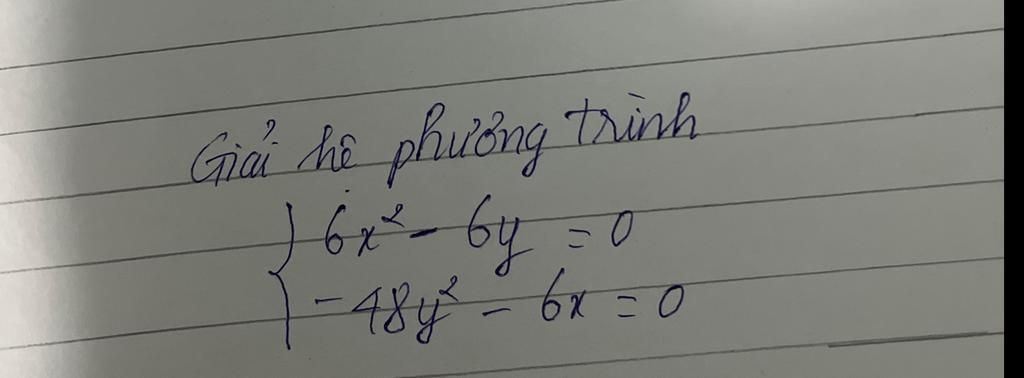 Giải hệ phương trình
6x² - 6y = 0
- 48y² - 6x = 0